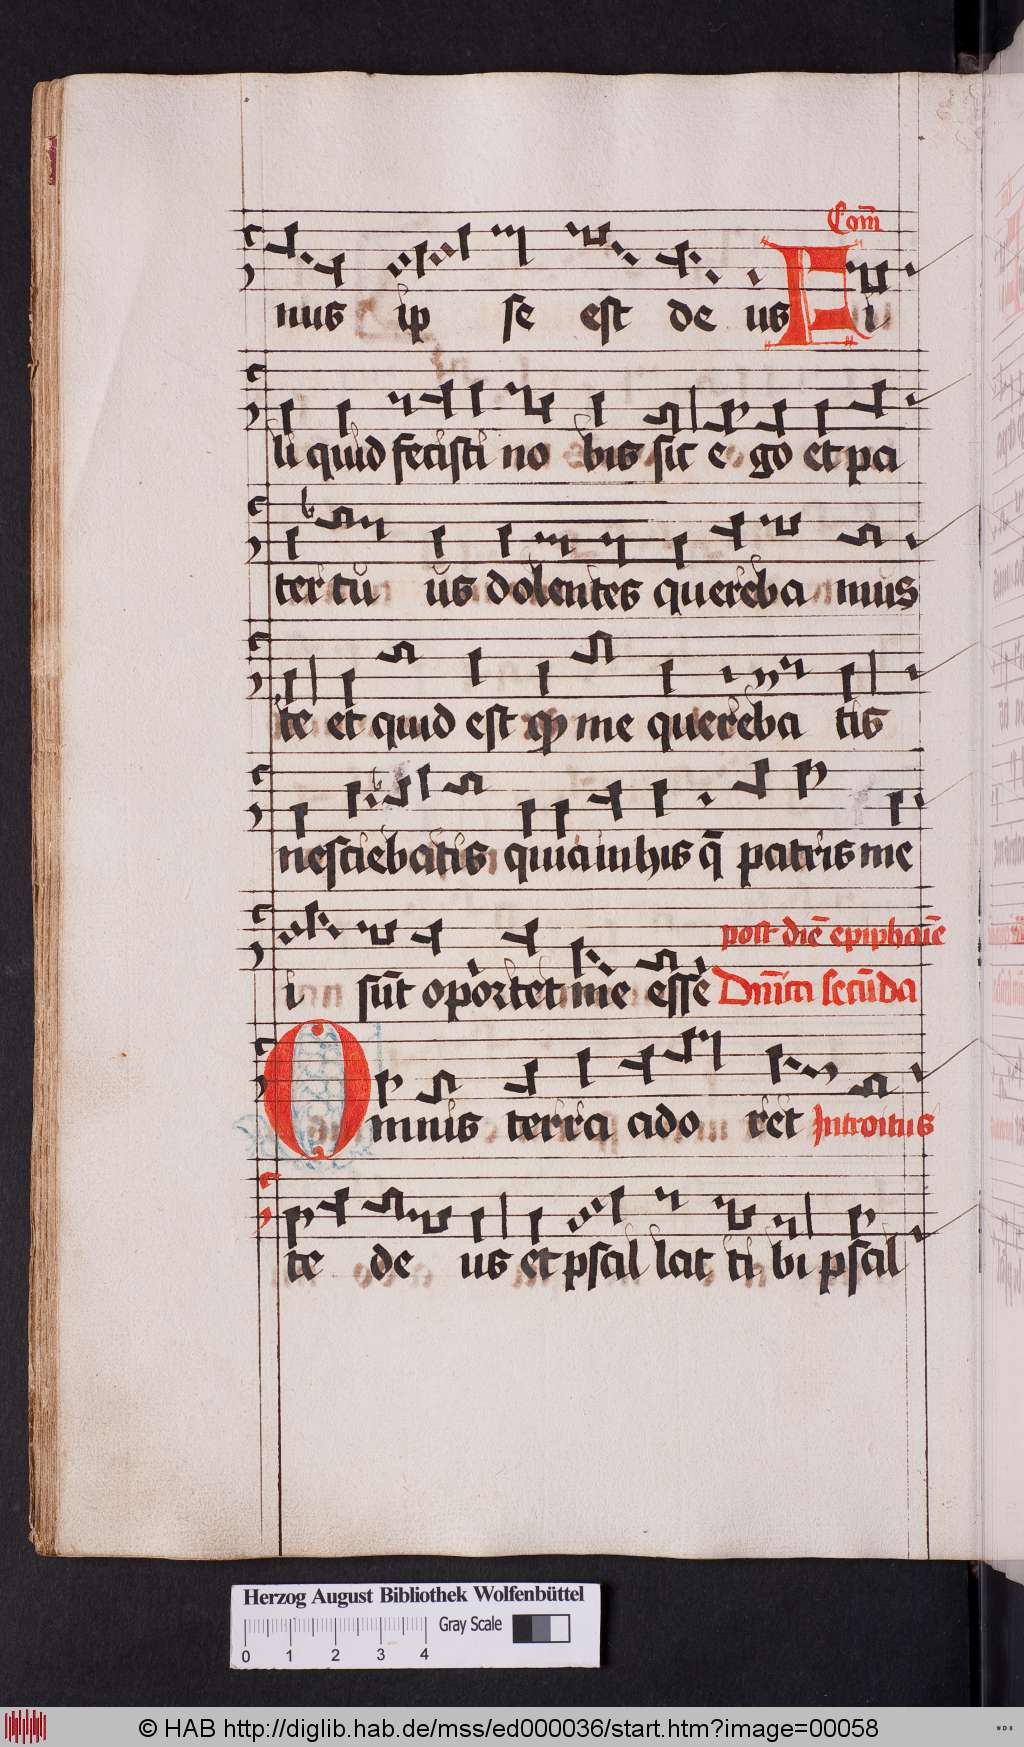 Com̄
nus ip se est de us Fi
li quid fecisti no bis sic e go et pa
ter tu us dolentes quereba mus
te et quid est qp me quereba tis
nesciebatis quia in his q̄ patris me
post diē epiphaīe
i sūt oportet me esse Dn̄ica secūda
Omnis terra ado ret Introitus
te de us et psal lat ti bi psal
Herzog August Bibliothek Wolfenbüttel
Gray Scale
0 1 2 3 4
© HAB http://diglib.hab.de/mss/ed000036/start.htm?image=00058